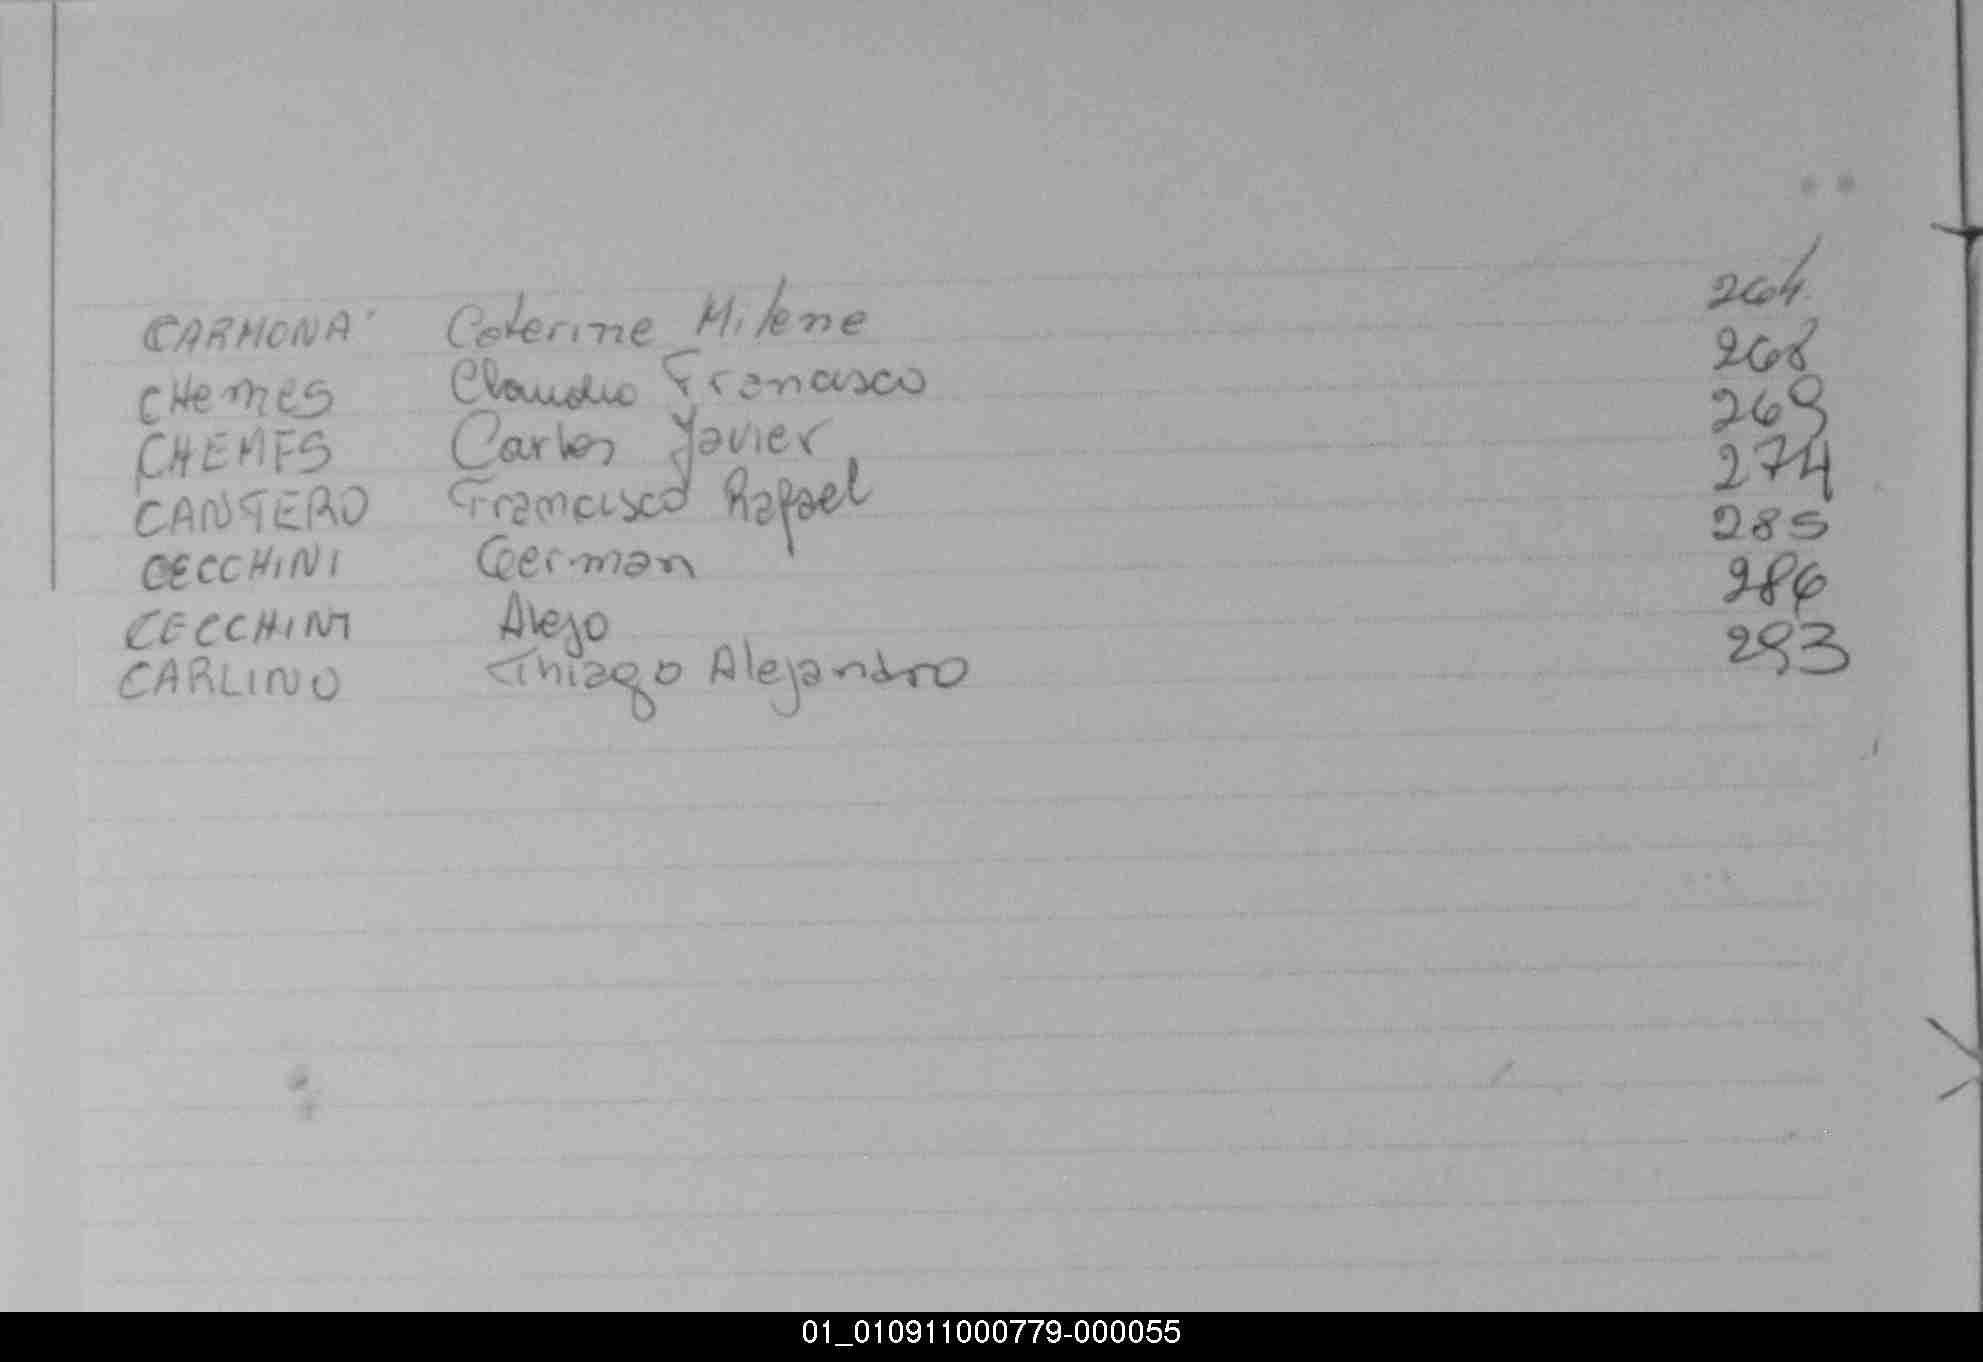 CARMONA Caterine Milene 264
CHEMES Claudio Francisco 268
CHEMES Carlos Javier 269
CANTERO Francisco Rafael 274
CECCHINI German 285
CECCHINI Alejo 286
CARLINO Thiago Alejandro 293
01_010911000779-000055